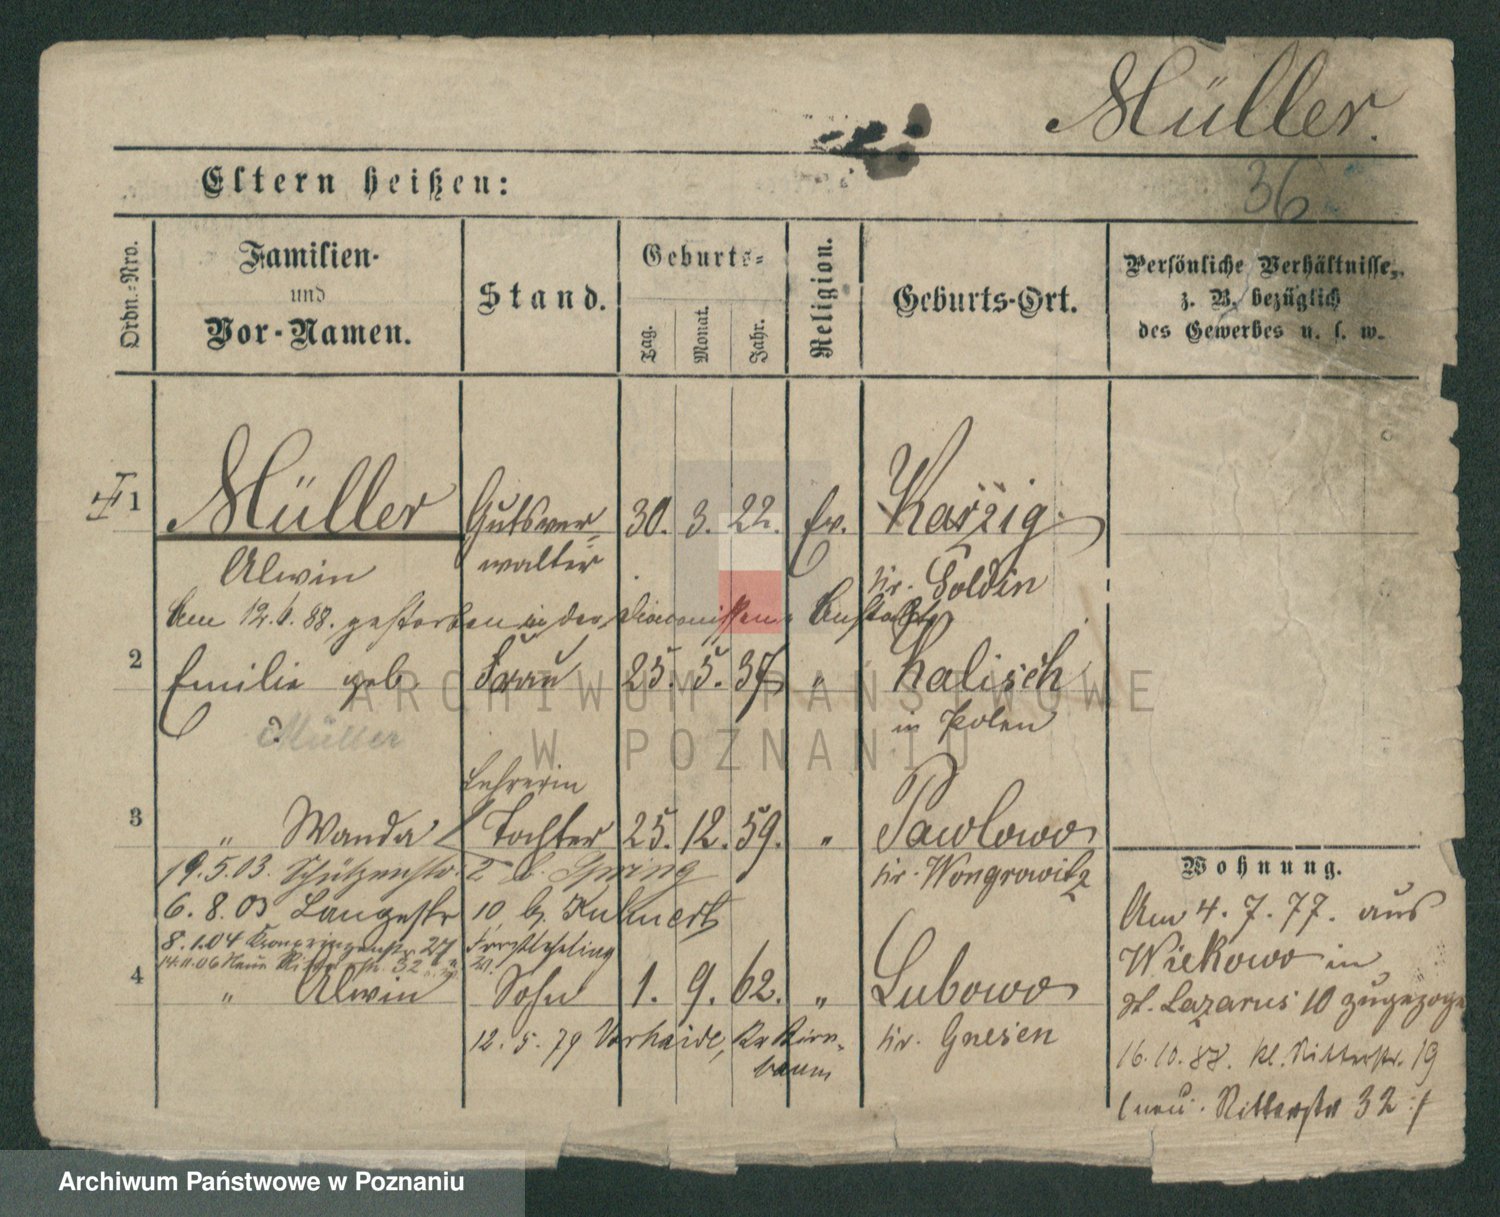 Müller.
36
Eltern heißen:
Ordn.-Nro.
Familien-
und
Vor-Namen.
Stand.
Geburts-
Tag.
Monat.
Jahr.
Religion.
Geburts-Ort.
Persönliche Verhältnisse,
z. B. bezüglich
des Gewerbes u. s. w.
1 Müller Gutsver- 30. 3. 22. Ev. Karzig.
Alwin walter Kr. Soldin
Am 12. 1. 88. gestorben in der Diaconissen Anstalt
2 Emilie geb. Frau 25. 5. 37 " Kalisch
Müller in Polen
Lehrerin
3 " Wanda Tochter 25. 12. 59. " Pawlowo
19.5.03. Schützenstr. 2 b. Kr. Wongrowitz
6.8.03 Langestr 10 b. Kuhnert
8.1.04 Kronprinzenstr. 27 Forstlehrling
14.11.06 Neue 32
4 " Alwin Sohn 1. 9. 62. " Lubowo
12. 5. 79 Vorheide, Kr Birn- Kr. Gnesen
baum
Wohnung.
Am 4. 7. 77. aus
Wiekowo in
St. Lazarus 10 zugezogen
16.10.88. kl. Ritterstr. 19
(neu: Ritterstr 32 :/
ARCHIWUM PAŃSTWOWE
W POZNANIU
Archiwum Państwowe w Poznaniu